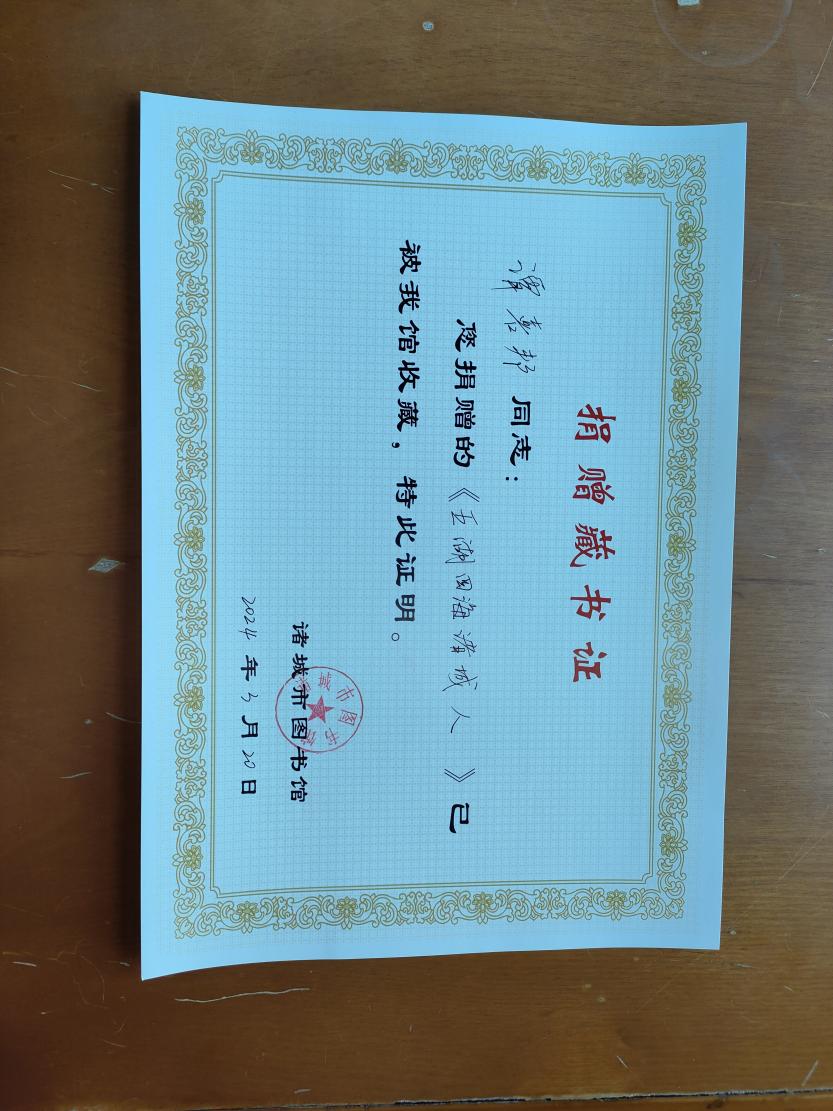 捐赠藏书证
谭 邦 同志：
您捐赠的《五湖四海诸城人》已
被我馆收藏，特此证明。
诸城市图书馆
2024年3月20日
诸城市图书馆